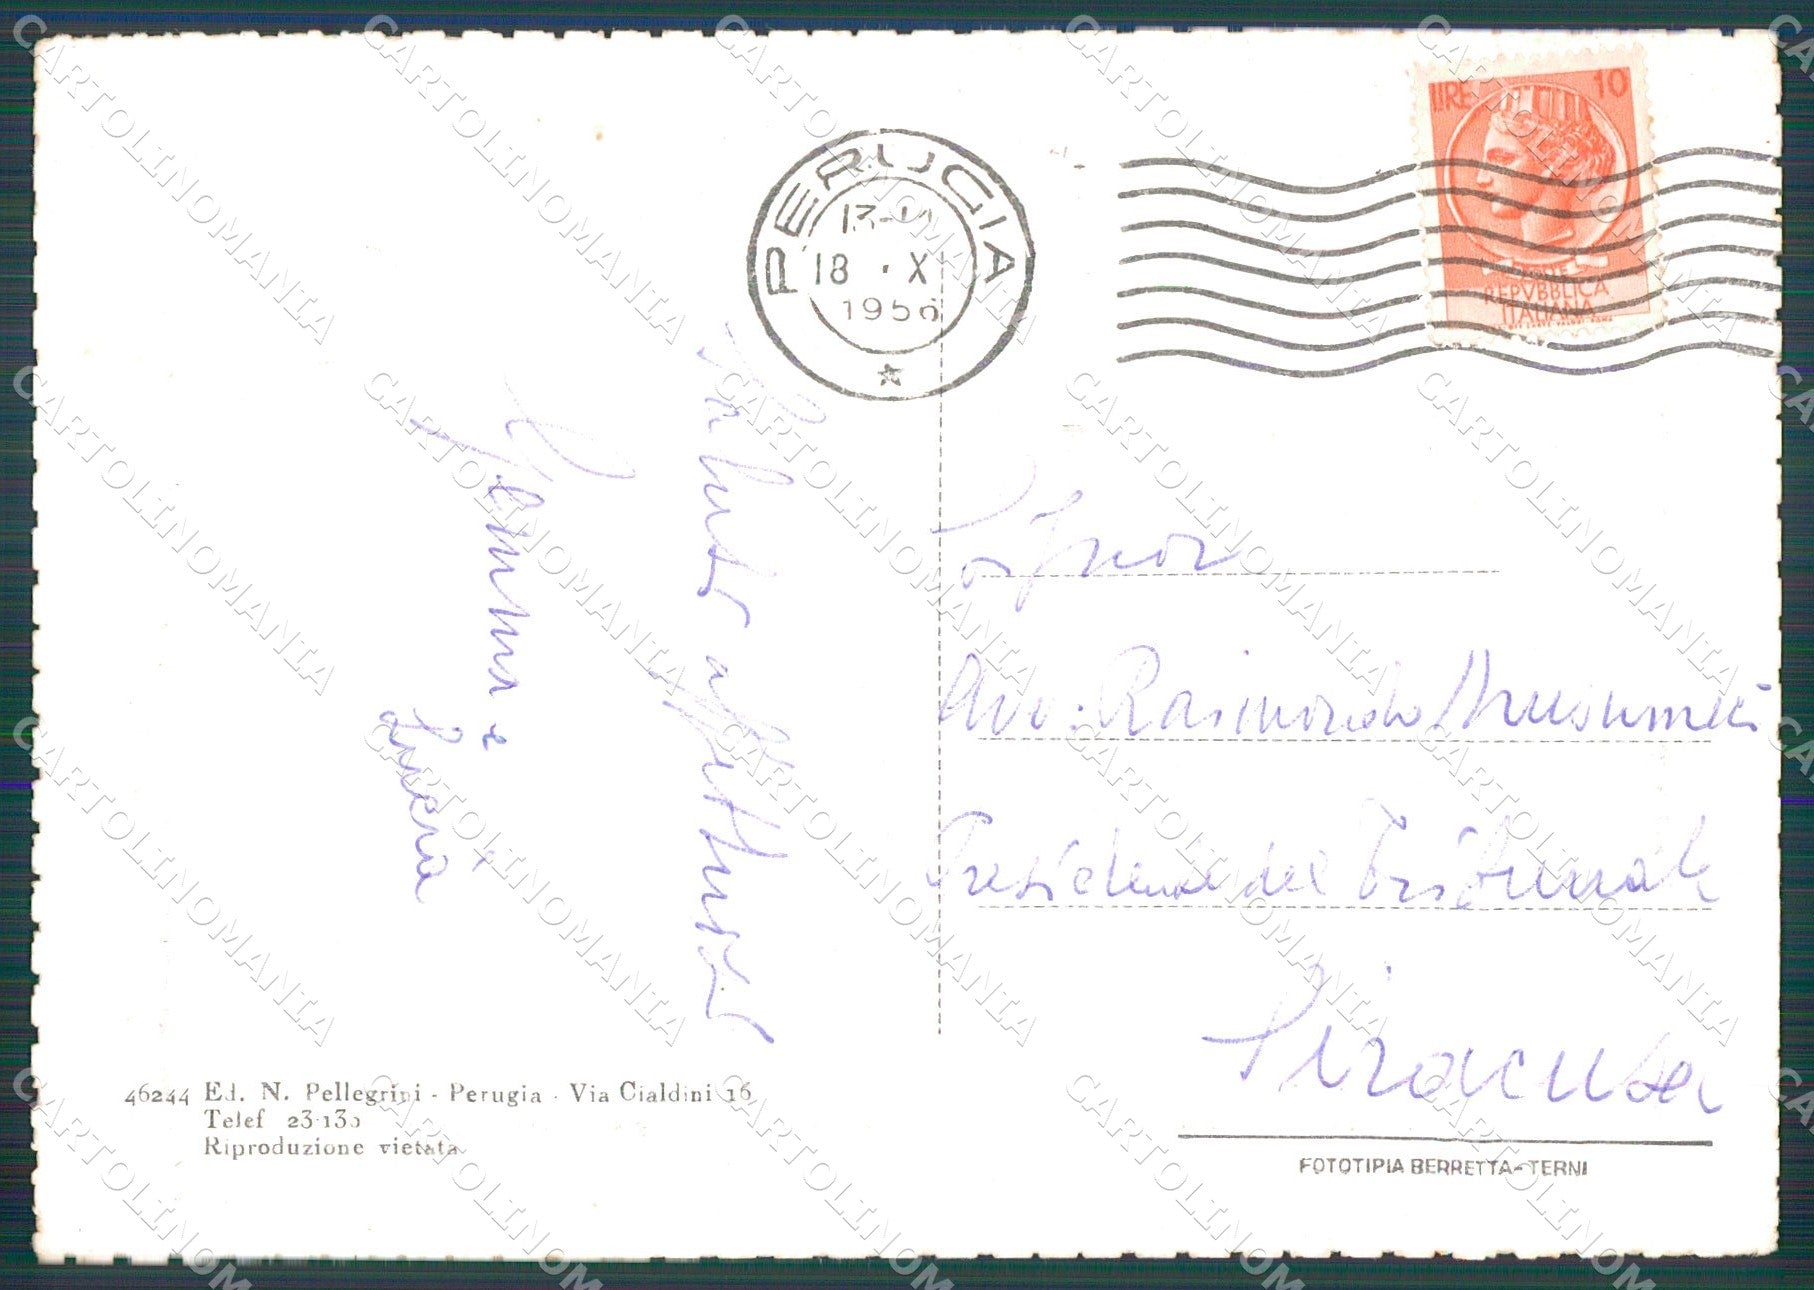 PERUGIA
13-14
18 · X
1956
LIRE 10
REPVBBLICA
ITALIANA
Saluti affettuosi
Gemma e
Lucia
Signor
Avv. Raimondo Musumeci
Presidente del Tribunale
Siracusa
46244 Ed. N. Pellegrini - Perugia - Via Cialdini 16
Telef 23-130
Riproduzione vietata
FOTOTIPIA BERRETTA-TERNI
CARTOLINOMANIA